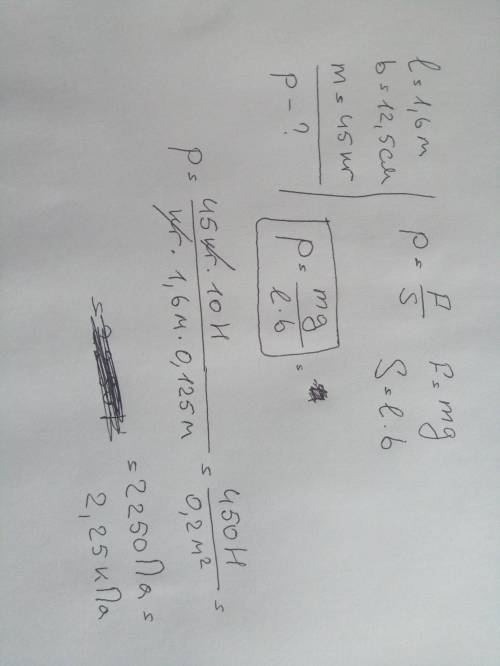 l = 1,6м
b = 12,5см
m = 45кг
p - ?
p = F/S F = mg
S = l·b
p = mg/l·b =
p = 45кг·10Н/кг·1,6м·0,125м = 450Н/0,2м² =
= 2250Па =
2,25кПа